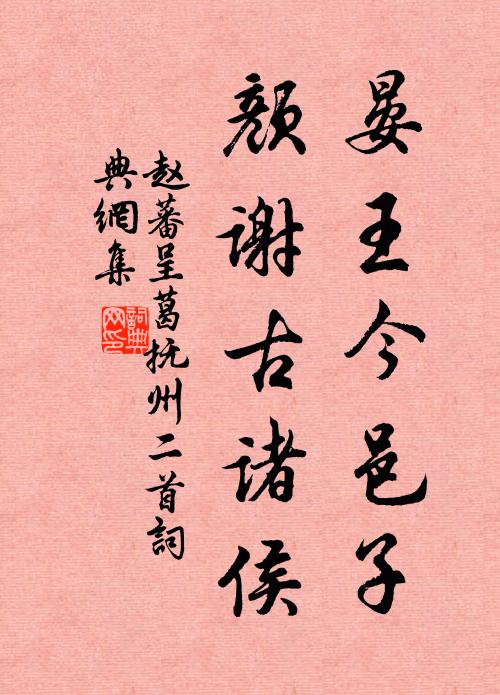 晏王今邑子
颜谢古诸侯
赵蕃呈葛抚州二首詞
典網集
詞典网印